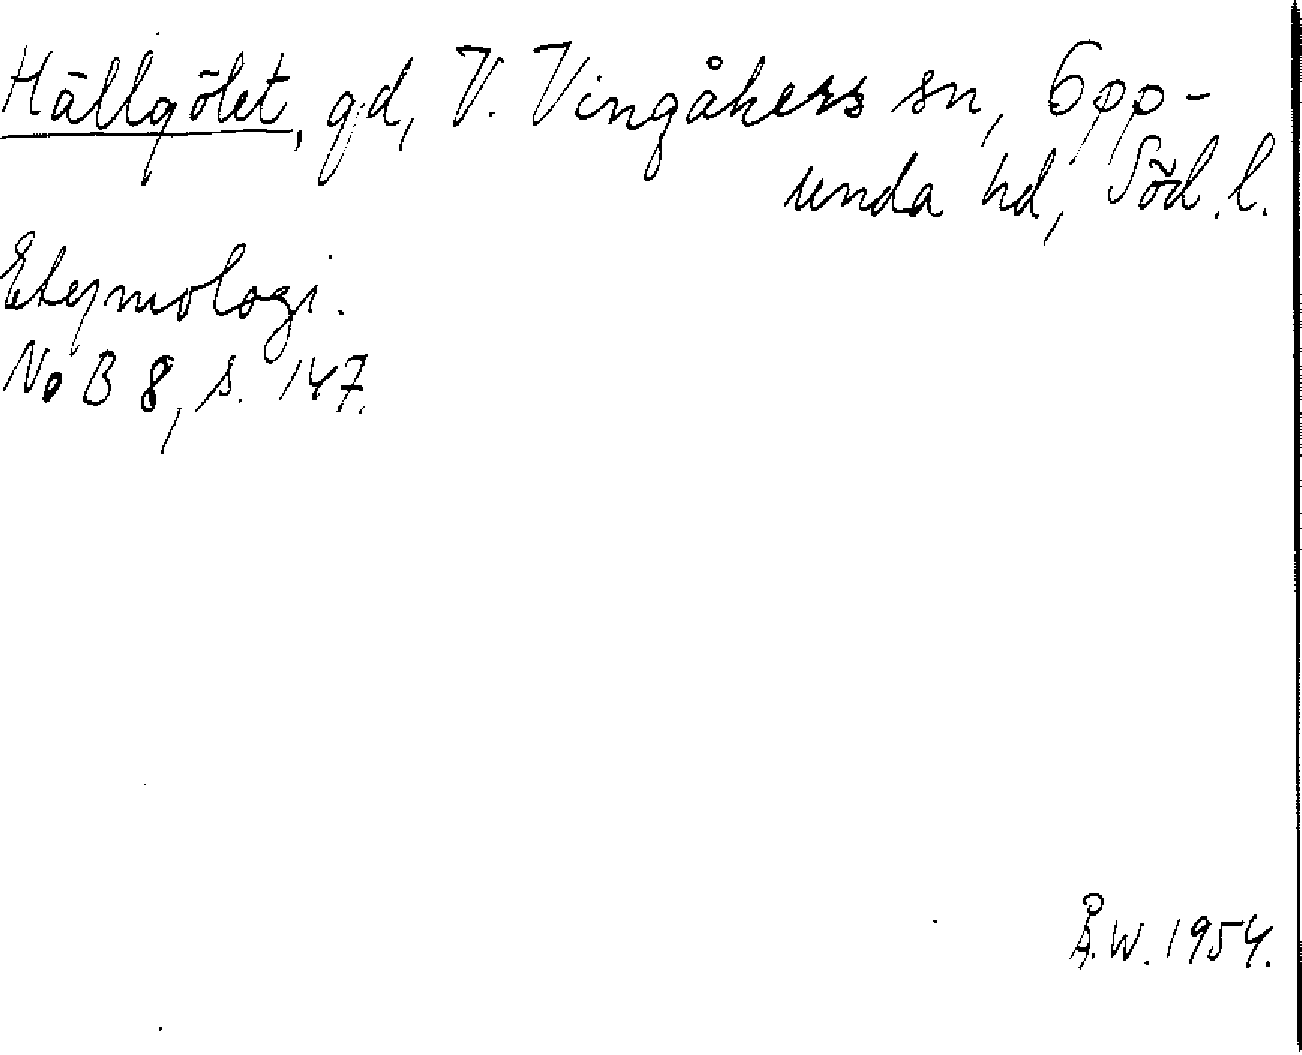 Hällgölet, gd, V. Vingåkers sn, Opp-
unda hd, Söd. l.
Etymologi.
NoB 8, s. 147.
Å.W. 1954.